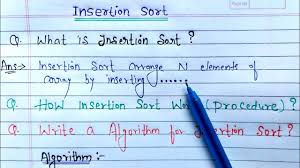 Insertion Sort
Q. What is Insertion Sort ?
Ans→ Insertion Sort arrange N elements of
array by inserting ......
Q. How Insertion Sort Work (Procedure) ?
Q. Write a Algorithm for Insertion Sort ?
Algorithm :-